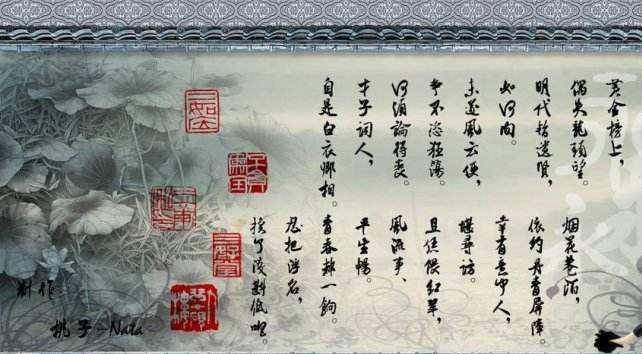 黄金榜上，
偶失龙头望。
明代暂遗贤，
如何向。
未遂风云便，
争不恣狂荡。
何须论得丧。
才子词人，
自是白衣卿相。
烟花巷陌，
依约丹青屏障。
幸有意中人，
堪寻访。
且恁偎红翠，
风流事、
平生畅。
青春都一饷。
忍把浮名，
换了浅斟低唱。
制作
桃子-Nata